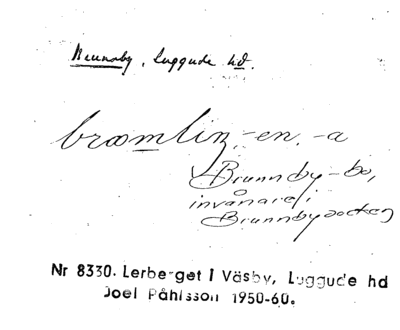 Brunnby, Luggude hd.
bræmling, -en, -a
Brunnby-bo,
invånare i
Brunnby socken
Nr 8330. Lerberget i Väsby, Luggude hd
Joel Påhlsson 1950-60.